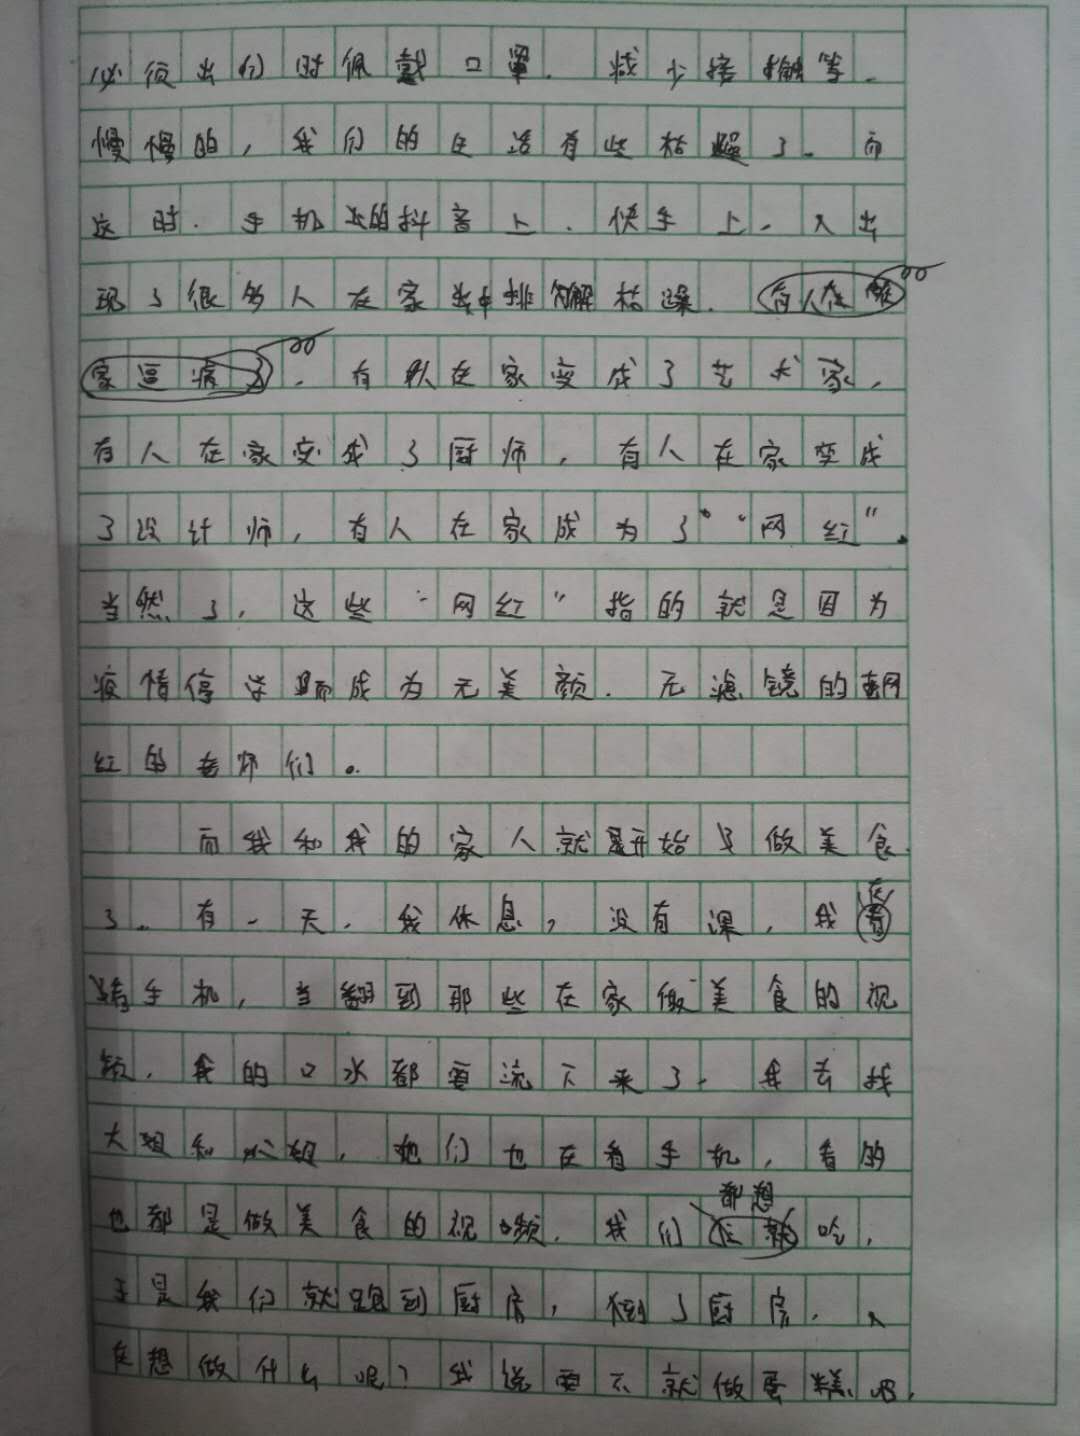 必须出们时佩戴口罩.减少接触等.
慢慢的,我们的生活有些枯燥了.而
这时.手机上的抖音上.快手上.又出
现了很多人在家当中排解枯燥.有人在
家逗孩了,有人在家变成了艺术家,
有人在家变成了厨师,有人在家变成
了设计师,有人在家成为了“网红”.
当然了,这些“网红”指的就是因为
疫情停学而成为无美颜.无滤镜的网
红的老师们。
而我和我的家人就开始了做美食
了.有一天.我休息,没有课,我在
看手机,当翻到那些在家做美食的视
频.我的口水都要流下来了.我去找
大姐和小姐,她们也在看手机,看的
也都是做美食的视频.我们都想吃,
于是我们就跑到厨房,到了厨房.又
在想做什么呢?我说要不就做蛋糕吧.